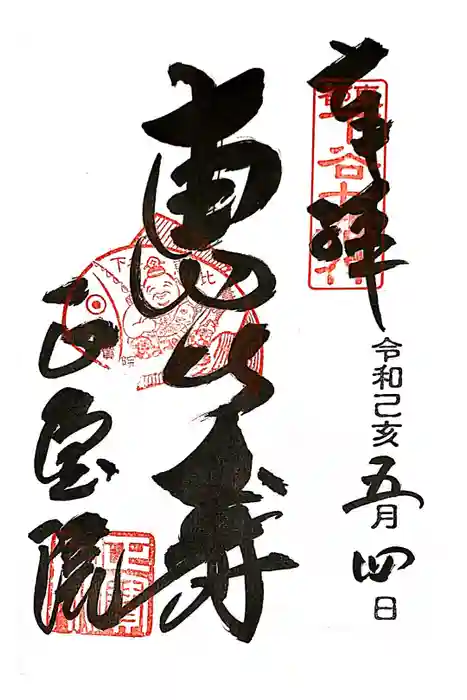 奉拝
令和己亥五月四日
恵比寿
正宝院
下谷七福神